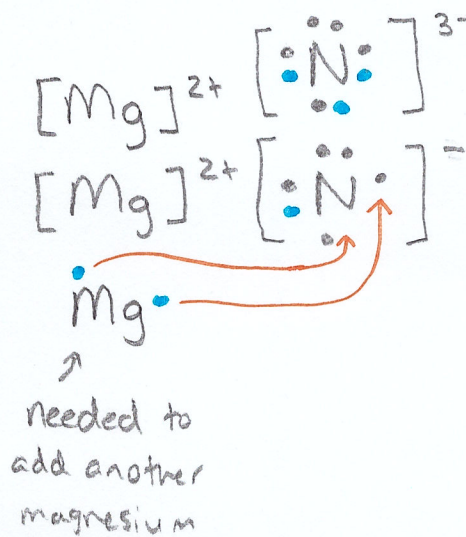 [Mg]²⁺ [N]³⁻
[Mg]²⁺ [N]⁻
Mg
needed to
add another
magnesium